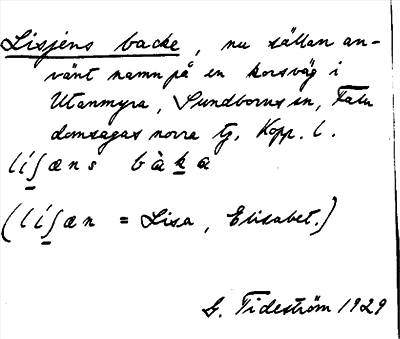 Lisjens backe, nu sällan an-
vänt namn på en korsväg i
Utanmyra, Sundborns sn, Falu
domsagas norra tg, Kopp. l.
líʃæns bàka
(líʃæn = Lisa, Elisabet.)
G. Tideström 1929